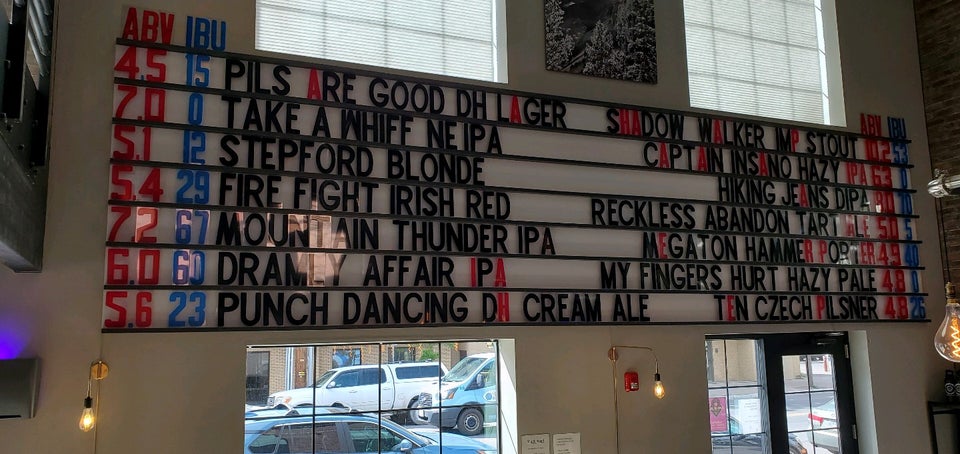 ABV IBU
4.5 15 PILS ARE GOOD DH LAGER
7.0 0 TAKE A WHIFF NE IPA
5.1 12 STEPFORD BLONDE
5.4 29 FIRE FIGHT IRISH RED
7.2 67 MOUNTAIN THUNDER IPA
6.0 60 DRAMMY AFFAIR IPA
5.6 23 PUNCH DANCING DH CREAM ALE
ABV IBU
SHADOW WALKER IMP STOUT 53
CAPTAIN INSANO HAZY IPA 6.3 0
HIKING JEANS DIPA
RECKLESS ABANDON TART ALE 5.0 5
MEGATON HAMMER PORTER 4.9 40
MY FINGERS HURT HAZY PALE 4.8 0
TEN CZECH PILSNER 4.8 26